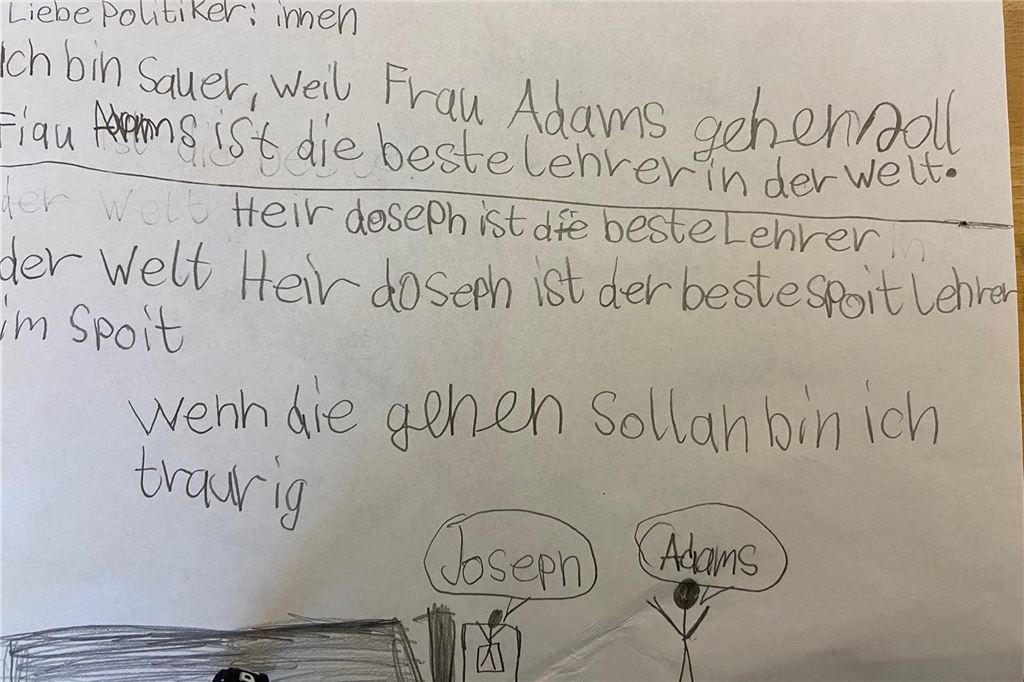 Liebe Politiker: innen
Ich bin Sauer, weil Frau Adams gehen soll
Frau Adams ist die beste lehrer in der Welt.
der Welt Heir doseph ist die beste Lehrer in
der Welt Heir doseph ist der beste spoit lehrer
im Spoit
Wenn die gehen Sollan bin ich
traurig
Joseph
Adams